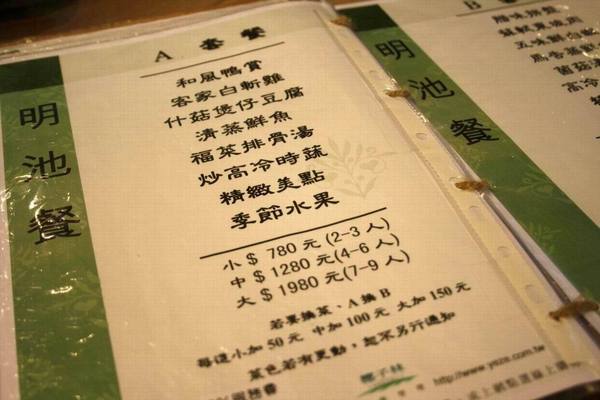 明池餐
A 套餐
和風鴨賞
客家白斬雞
什菇煲仔豆腐
清蒸鮮魚
福菜排骨湯
炒高冷時蔬
精緻美點
季節水果
小 $ 780 元 (2-3 人)
中 $ 1280 元 (4-6 人)
大 $ 1980 元 (7-9 人)
若要換菜、A 換 B
每道小加 50 元 中加 100 元 大加 150 元
菜色若有更動,恕不另行通知
椰子林
http://www.yeze.com.tw
明池餐
B